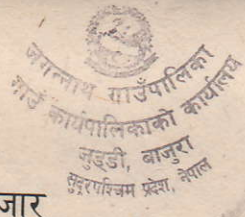 जगन्नाथ गाउँपालिका
गाउँ कार्यपालिकाको कार्यालय
जुड्डी, बाजुरा
सुदूरपश्चिम प्रदेश, नेपाल
जार